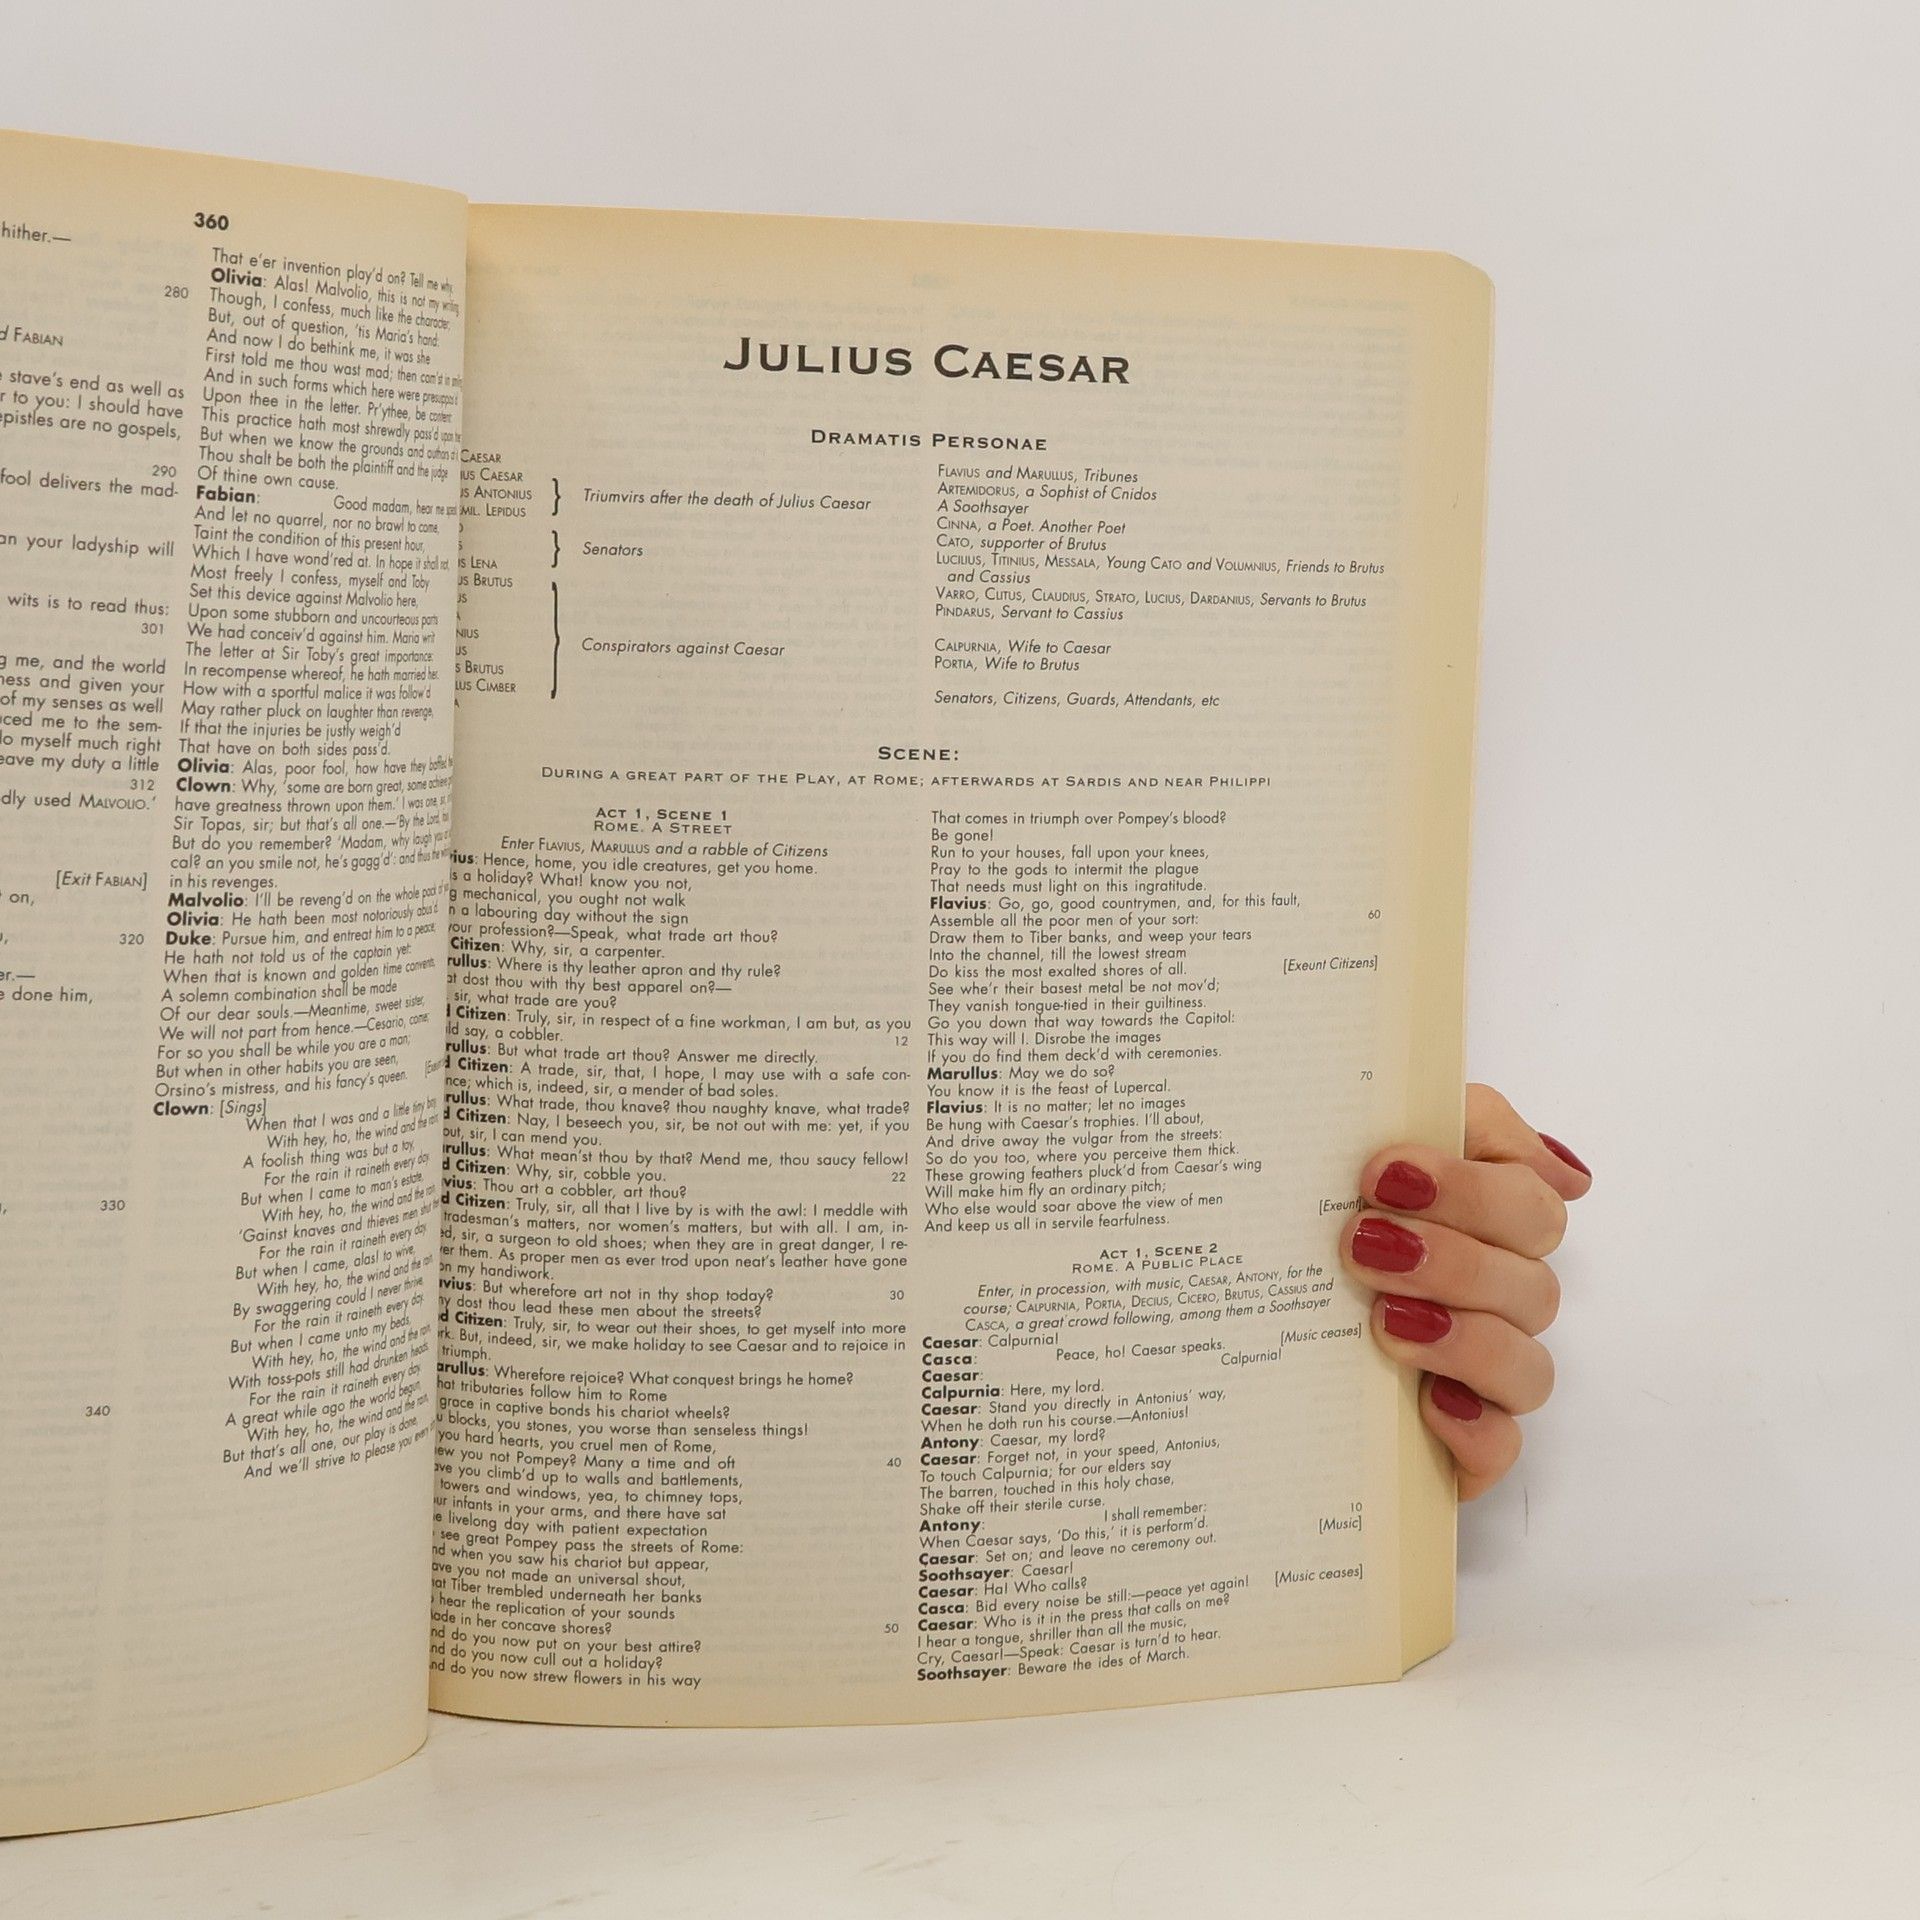 hither.—
280
d FABIAN
e stave's end as well as
r to you: I should have
epistles are no gospels,
290
fool delivers the mad-
an your ladyship will
wits is to read thus:
301
g me, and the world
ness and given your
of my senses as well
uced me to the sem-
do myself much right
eave my duty a little
312
dly used MALVOLIO.'
[Exit FABIAN]
on,
320
er.—
e done him,
330
340
360
That e'er invention play'd on? Tell me why.
Olivia: Alas! Malvolio, this is not my writing,
Though, I confess, much like the character;
But, out of question, 'tis Maria's hand:
And now I do bethink me, it was she
First told me thou wast mad; then cam'st in smiling,
And in such forms which here were presuppos'd
Upon thee in the letter. Pr'ythee, be content:
This practice hath most shrewdly pass'd upon thee
But when we know the grounds and authors of it
Thou shalt be both the plaintiff and the judge
Of thine own cause.
Fabian: Good madam, hear me speak
And let no quarrel, nor no brawl to come,
Taint the condition of this present hour,
Which I have wond'red at. In hope it shall not,
Most freely I confess, myself and Toby
Set this device against Malvolio here,
Upon some stubborn and uncourteous parts
We had conceiv'd against him. Maria writ
The letter at Sir Toby's great importance:
In recompense whereof, he hath married her.
How with a sportful malice it was follow'd
May rather pluck on laughter than revenge,
If that the injuries be justly weigh'd
That have on both sides pass'd.
Olivia: Alas, poor fool, how have they baffled
Clown: Why, 'some are born great, some achieve
have greatness thrown upon them.' I was one, sir,
Sir Topas, sir; but that's all one.—'By the Lord, fool,
But do you remember? 'Madam, why laugh you
cal? an you smile not, he's gagg'd': and thus the
in his revenges.
Malvolio: I'll be reveng'd on the whole pack of
Olivia: He hath been most notoriously abus'd.
Duke: Pursue him, and entreat him to a peace;
He hath not told us of the captain yet:
When that is known and golden time convents,
A solemn combination shall be made
Of our dear souls.—Meantime, sweet sister,
We will not part from hence.—Cesario, come;
For so you shall be while you are a man;
But when in other habits you are seen,
Orsino's mistress, and his fancy's queen.
Clown: [Sings]
When that I was and a little tiny boy,
With hey, ho, the wind and the rain,
A foolish thing was but a toy,
For the rain it raineth every day.
But when I came to man's estate,
With hey, ho, the wind and the rain,
'Gainst knaves and thieves men shut
For the rain it raineth every day.
But when I came, alas! to wive,
With hey, ho, the wind and the rain,
By swaggering could I never thrive,
For the rain it raineth every day.
But when I came unto my beds,
With hey, ho, the wind and the rain,
With toss-pots still had drunken heads,
For the rain it raineth every day.
A great while ago the world begun,
With hey, ho, the wind and the rain,
But that's all one, our play is done,
And we'll strive to please you every
JULIUS CAESAR
DRAMATIS PERSONAE
CAESAR
IUS CAESAR
US ANTONIUS
MIL. LEPIDUS
Triumvirs after the death of Julius Caesar
Senators
US LENA
US BRUTUS
US
NIUS
US
Conspirators against Caesar
S BRUTUS
LUS CIMBER
FLAVIUS and MARULLUS, Tribunes
ARTEMIDORUS, a Sophist of Cnidos
A Soothsayer
CINNA, a Poet. Another Poet
CATO, supporter of Brutus
LUCILIUS, TITINIUS, MESSALA, Young CATO and VOLUMNIUS, Friends to Brutus
and Cassius
VARRO, CLITUS, CLAUDIUS, STRATO, LUCIUS, DARDANIUS, Servants to Brutus
PINDARUS, Servant to Cassius
CALPURNIA, Wife to Caesar
PORTIA, Wife to Brutus
Senators, Citizens, Guards, Attendants, etc
SCENE:
DURING A GREAT PART OF THE PLAY, AT ROME; AFTERWARDS AT SARDIS AND NEAR PHILIPPI
ACT 1, SCENE 1
ROME. A STREET
Enter FLAVIUS, MARULLUS and a rabble of Citizens
vius: Hence, home, you idle creatures, get you home.
s a holiday? What! know you not,
g mechanical, you ought not walk
n a labouring day without the sign
your profession?—Speak, what trade art thou?
Citizen: Why, sir, a carpenter.
rullus: Where is thy leather apron and thy rule?
at dost thou with thy best apparel on?—
sir, what trade are you?
d Citizen: Truly, sir, in respect of a fine workman, I am but, as you
ld say, a cobbler. 12
rullus: But what trade art thou? Answer me directly.
d Citizen: A trade, sir, that, I hope, I may use with a safe con-
nce; which is, indeed, sir, a mender of bad soles.
rullus: What trade, thou knave? thou naughty knave, what trade?
d Citizen: Nay, I beseech you, sir, be not out with me: yet, if you
out, sir, I can mend you.
rullus: What mean'st thou by that? Mend me, thou saucy fellow!
d Citizen: Why, sir, cobble you. 22
vius: Thou art a cobbler, art thou?
d Citizen: Truly, sir, all that I live by is with the awl: I meddle with
tradesman's matters, nor women's matters, but with all. I am, in-
ed, sir, a surgeon to old shoes; when they are in great danger, I re-
ver them. As proper men as ever trod upon neat's leather have gone
on my handiwork.
avius: But wherefore art not in thy shop today? 30
hy dost thou lead these men about the streets?
d Citizen: Truly, sir, to wear out their shoes, to get myself into more
rk. But, indeed, sir, we make holiday to see Caesar and to rejoice in
triumph.
arullus: Wherefore rejoice? What conquest brings he home?
hat tributaries follow him to Rome
grace in captive bonds his chariot wheels?
u blocks, you stones, you worse than senseless things!
you hard hearts, you cruel men of Rome,
ew you not Pompey? Many a time and oft 40
ave you climb'd up to walls and battlements,
towers and windows, yea, to chimney tops,
ur infants in your arms, and there have sat
e livelong day with patient expectation
see great Pompey pass the streets of Rome:
nd when you saw his chariot but appear,
ave you not made an universal shout,
at Tiber trembled underneath her banks
hear the replication of your sounds
ade in her concave shores? 50
nd do you now put on your best attire?
nd do you now cull out a holiday?
nd do you now strew flowers in his way
That comes in triumph over Pompey's blood?
Be gone!
Run to your houses, fall upon your knees,
Pray to the gods to intermit the plague
That needs must light on this ingratitude.
Flavius: Go, go, good countrymen, and, for this fault,
Assemble all the poor men of your sort: 60
Draw them to Tiber banks, and weep your tears
Into the channel, till the lowest stream
Do kiss the most exalted shores of all. [Exeunt Citizens]
See whe'r their basest metal be not mov'd;
They vanish tongue-tied in their guiltiness.
Go you down that way towards the Capitol:
This way will I. Disrobe the images
If you do find them deck'd with ceremonies.
Marullus: May we do so? 70
You know it is the feast of Lupercal.
Flavius: It is no matter; let no images
Be hung with Caesar's trophies. I'll about,
And drive away the vulgar from the streets:
So do you too, where you perceive them thick.
These growing feathers pluck'd from Caesar's wing
Will make him fly an ordinary pitch;
Who else would soar above the view of men
And keep us all in servile fearfulness. [Exeunt]
ACT 1, SCENE 2
ROME. A PUBLIC PLACE
Enter, in procession, with music, CAESAR, ANTONY, for the
course; CALPURNIA, PORTIA, DECIUS, CICERO, BRUTUS, CASSIUS and
CASCA, a great crowd following, among them a Soothsayer
Caesar: Calpurnia!
Casca: Peace, ho! Caesar speaks. [Music ceases]
Caesar: Calpurnia!
Calpurnia: Here, my lord.
Caesar: Stand you directly in Antonius' way,
When he doth run his course.—Antonius!
Antony: Caesar, my lord?
Caesar: Forget not, in your speed, Antonius,
To touch Calpurnia; for our elders say
The barren, touched in this holy chase,
Shake off their sterile curse.
Antony: I shall remember: 10
When Caesar says, 'Do this,' it is perform'd.
Caesar: Set on; and leave no ceremony out. [Music]
Soothsayer: Caesar!
Caesar: Ha! Who calls?
Casca: Bid every noise be still:—peace yet again! [Music ceases]
Caesar: Who is it in the press that calls on me?
I hear a tongue, shriller than all the music,
Cry, Caesar!—Speak: Caesar is turn'd to hear.
Soothsayer: Beware the ides of March.